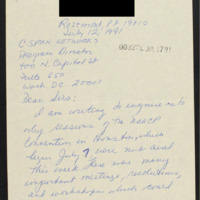 Rosemont PA 19010
July 12, 1991
C-SPAN NETWORKS
Program Director
400 N. Capitol St
Suite 650
Wash DC 20001
Dear Sirs:
I am writing to enquire as to
why sessions of the NAACP
Convention in Houston, which
began July 7 were not aired
this week. There were many
important meetings, resolutions,
and workshops which could